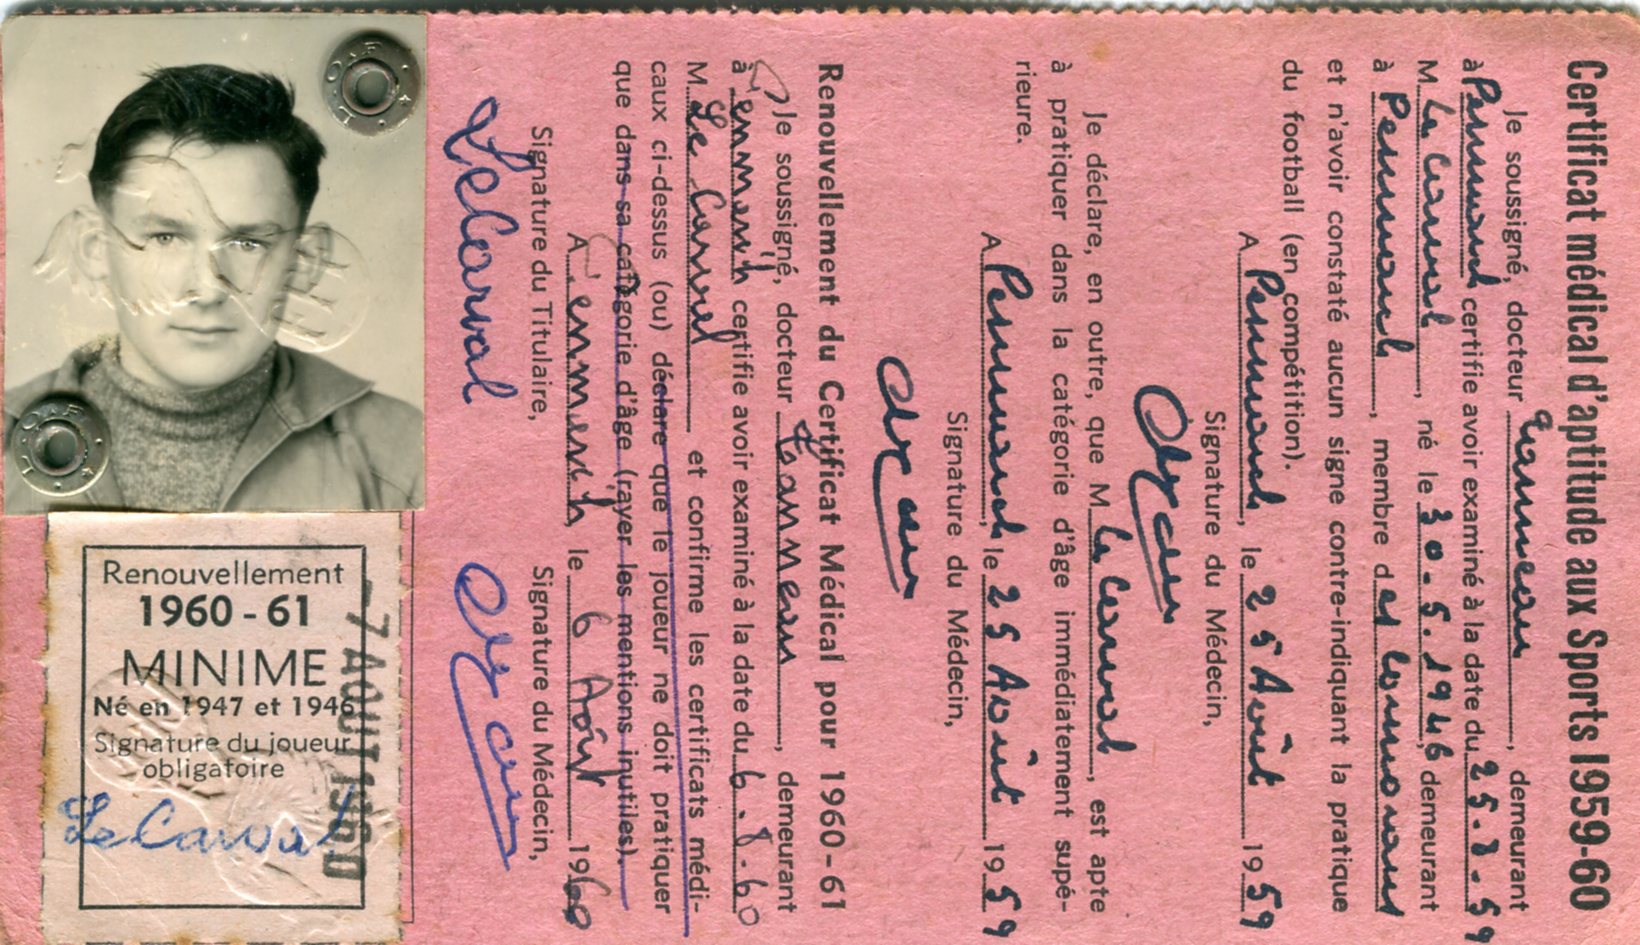 Certificat médical d'aptitude aux Sports 1959-60
Je soussigné, docteur Tanneau, demeurant
à Penmarch certifie avoir examiné à la date du 25.8.59
M Le Carval, né le 30.5.1946 demeurant
à Penmarch, membre d es
et n'avoir constaté aucun signe contre-indiquant la pratique
du football (en compétition).
A Penmarch, le 25 Août 1959
Signature du Médecin,
Je déclare, en outre, que M Le Carval, est apte
à pratiquer dans la catégorie d'âge immédiatement supé-
rieure.
A Penmarch, le 25 Août 1959
Signature du Médecin,
Renouvellement du Certificat Médical pour 1960-61
Je soussigné, docteur Tanneau, demeurant
à Penmarch certifie avoir examiné à la date du 6.8.60
M Le Carval et confirme les certificats médi-
caux ci-dessus (ou) déclare que le joueur ne doit pratiquer
que dans sa catégorie d'âge (rayer les mentions inutiles).
A Penmarch, le 6 Août 1960
Signature du Titulaire, Signature du Médecin,
LeCarval
Renouvellement
1960 - 61
MINIME
Né en 1947 et 1946
Signature du joueur
obligatoire
Le Carval
-7 AOUT 1960